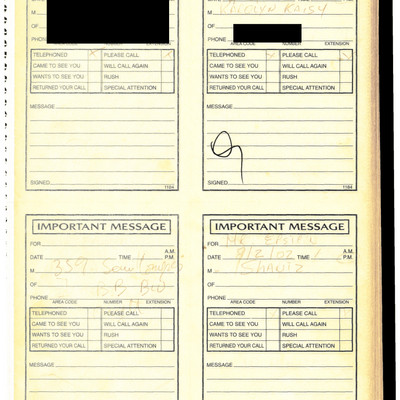 M
OF
PHONE
AREA CODE NUMBER EXTENSION
TELEPHONED PLEASE CALL
CAME TO SEE YOU WILL CALL AGAIN
WANTS TO SEE YOU RUSH
RETURNED YOUR CALL SPECIAL ATTENTION
MESSAGE
SIGNED
1184
AREA CODE NUMBER EXTENSION
TELEPHONED PLEASE CALL
CAME TO SEE YOU WILL CALL AGAIN
WANTS TO SEE YOU RUSH
RETURNED YOUR CALL SPECIAL ATTENTION
MESSAGE
SIGNED
1184
IMPORTANT MESSAGE
FOR
DATE TIME A.M. P.M.
M 359
OF
PHONE
AREA CODE NUMBER EXTENSION
TELEPHONED PLEASE CALL
CAME TO SEE YOU WILL CALL AGAIN
WANTS TO SEE YOU RUSH
RETURNED YOUR CALL SPECIAL ATTENTION
MESSAGE
IMPORTANT MESSAGE
FOR Mr.
DATE 8/2/02 TIME A.M. P.M.
M
OF
PHONE
AREA CODE NUMBER EXTENSION
TELEPHONED PLEASE CALL
CAME TO SEE YOU WILL CALL AGAIN
WANTS TO SEE YOU RUSH
RETURNED YOUR CALL SPECIAL ATTENTION
MESSAGE